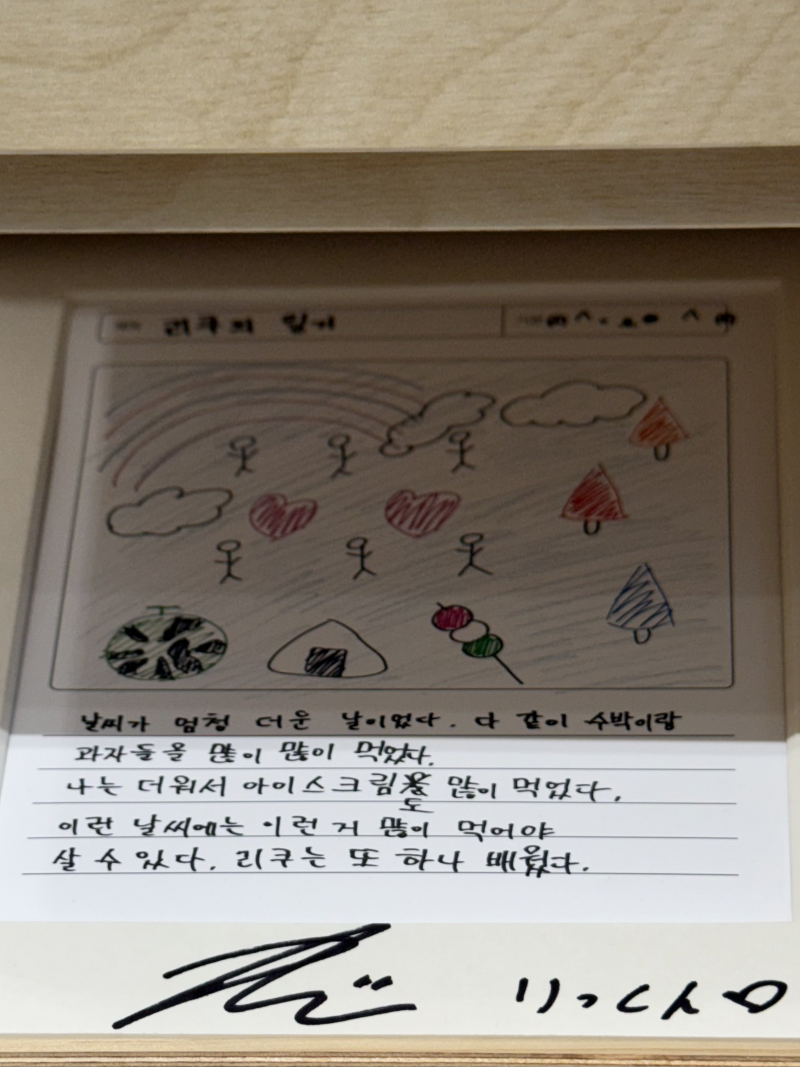 리쿠의 일기
날씨가 엄청 더운 날이었다. 다 같이 수박이랑
과자들을 많이 많이 먹었다.
나는 더워서 아이스크림도 많이 먹었다.
이런 날씨에는 이런 거 많이 먹어야
살 수 있다. 리쿠는 또 하나 배웠다.
りっくん